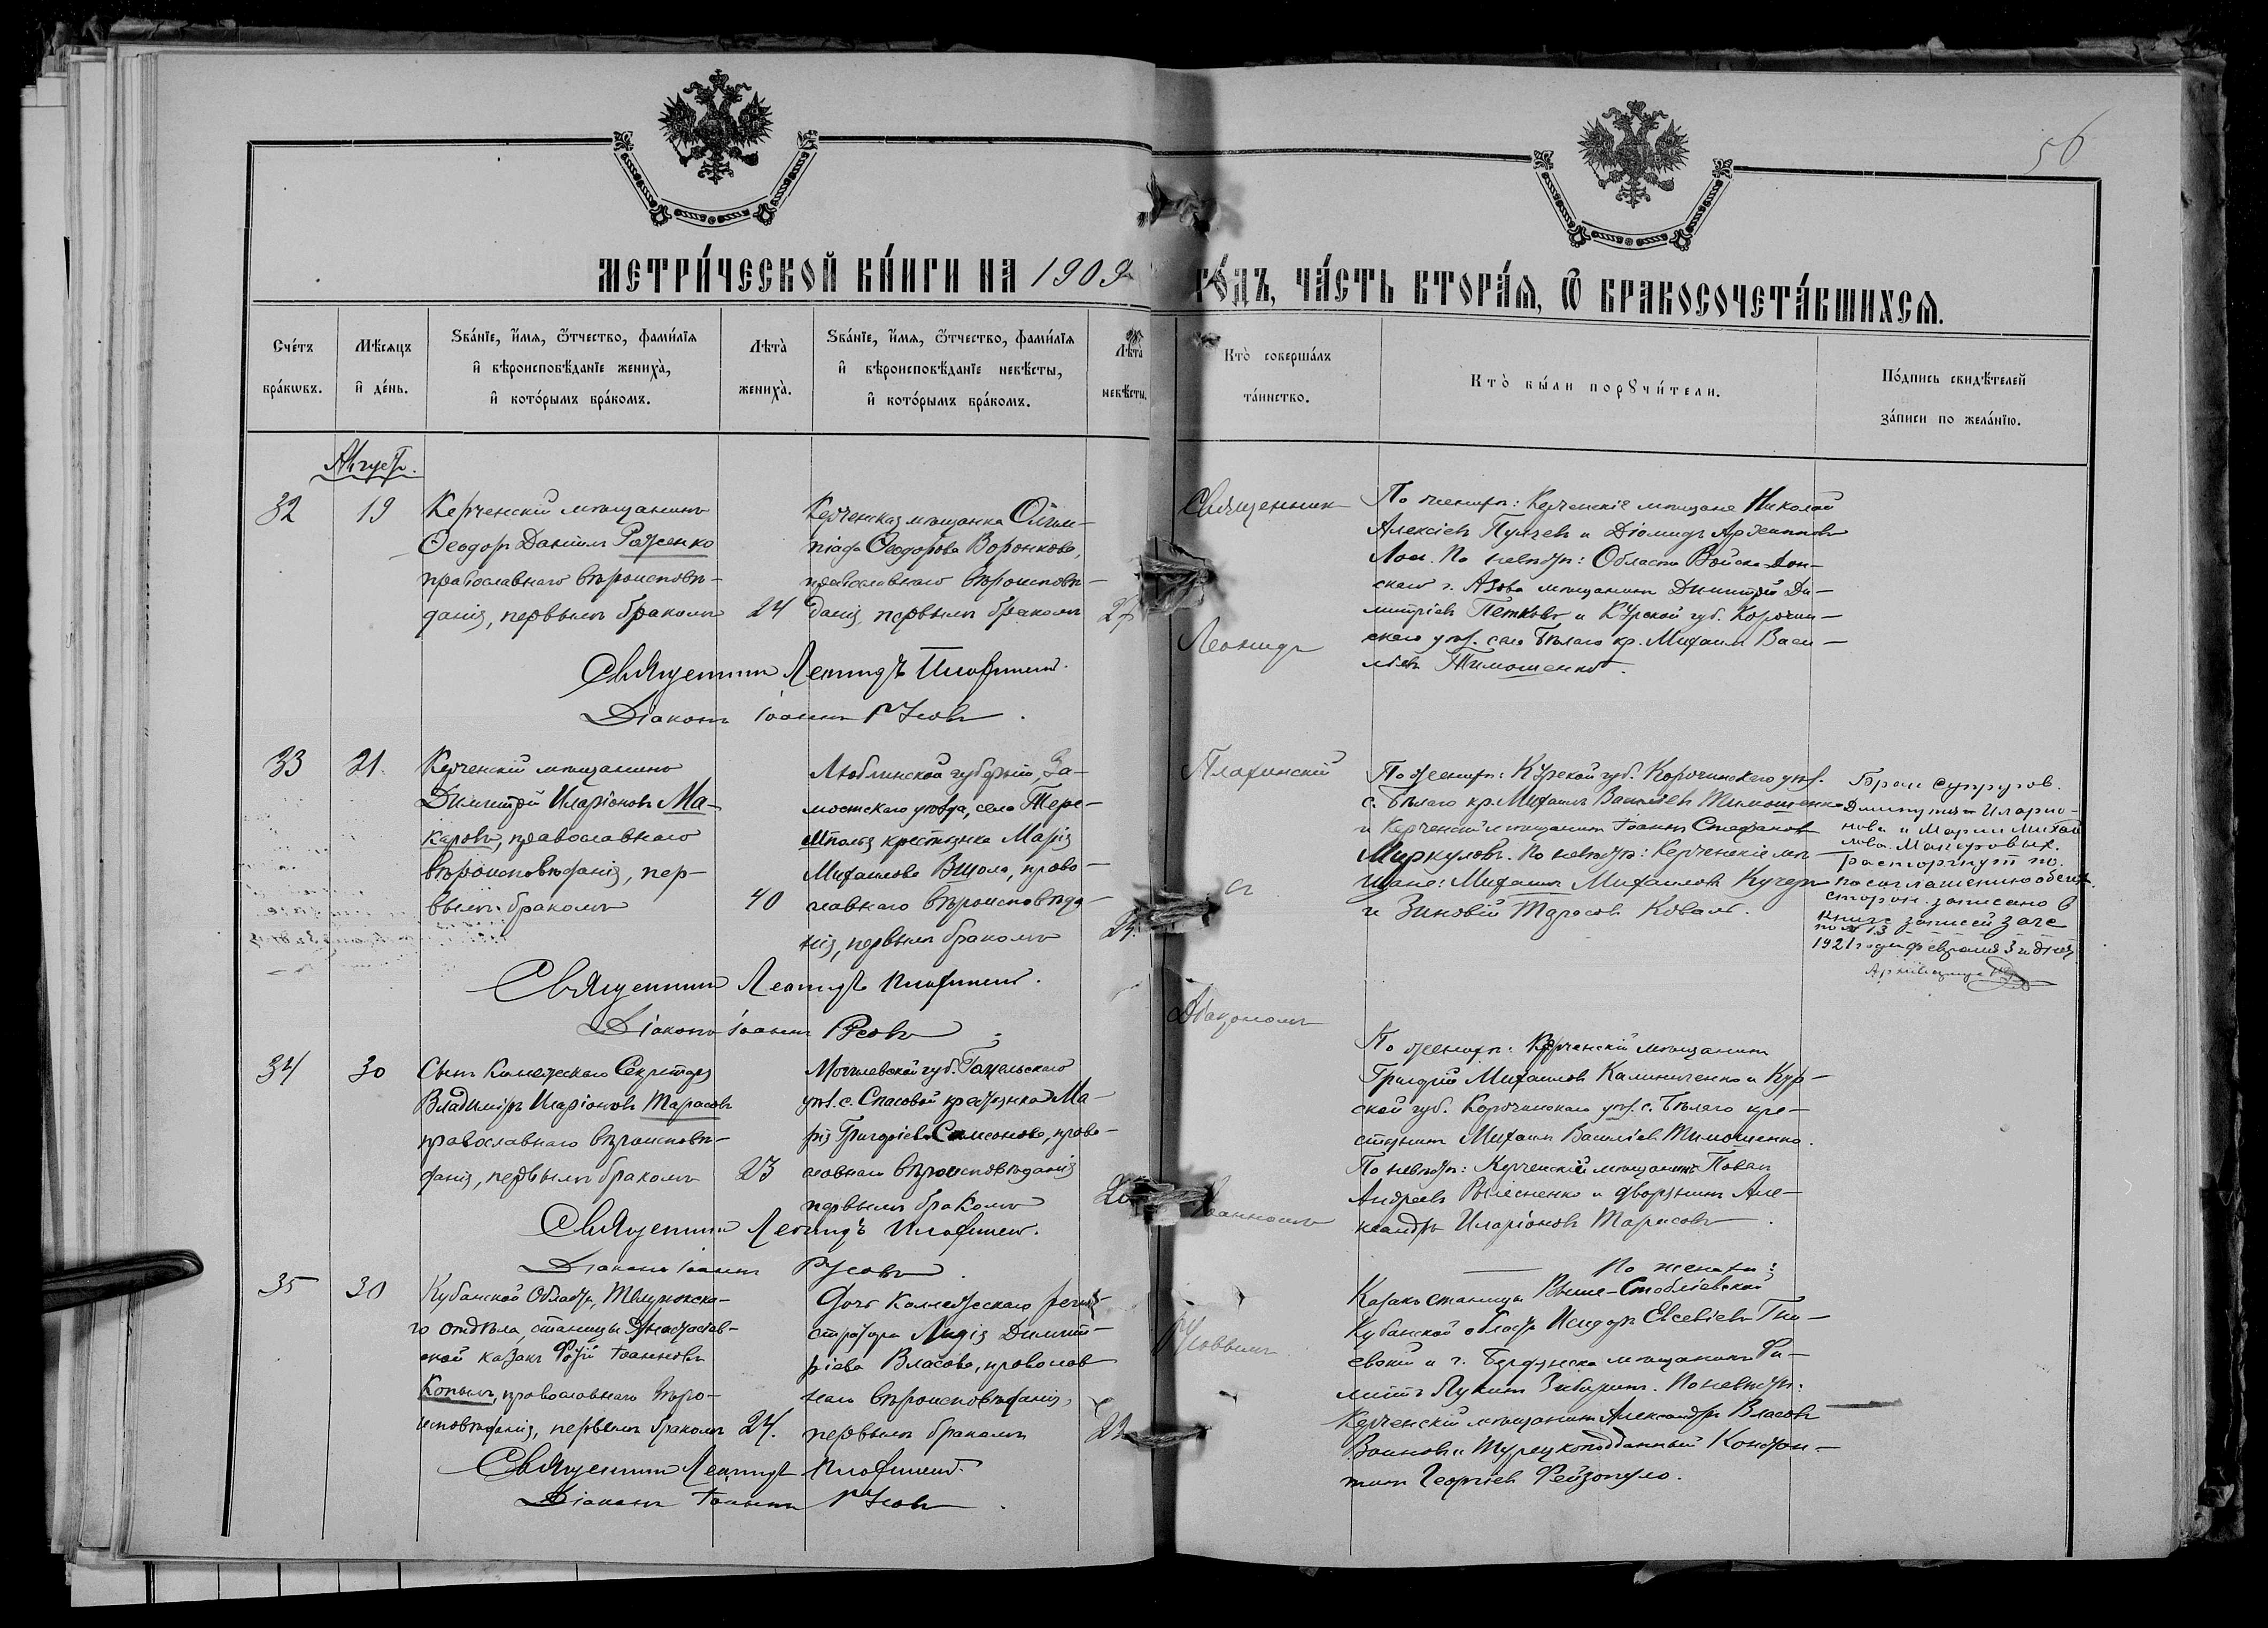 56
МЕТРИ́ЧЕСКОЙ КНИ́ГИ НА 1909
ГО́ДЪ, ЧА́СТЬ ВТОРА́Я, Ѿ БРАКОСОЧЕТА́ВШИХСЯ.
Сче́тъ бра́кѡвъ.
Мѣ́сяцъ и҆ де́нь.
Ѕва́нїе, и҆́мя, ѻ҆́тчество, фами́лїя
и҆ вѣроисповѣ́данїе жениха̀,
и҆ кото́рымъ бра́комъ.
Лѣта̀ жениха̀.
Ѕва́нїе, и҆́мя, ѻ҆́тчество, фами́лїя
и҆ вѣроисповѣ́данїе невѣ́сты,
и҆ кото́рымъ бра́комъ.
Лѣта̀ невѣ́сты.
Кто̀ соверша́лъ та́инство.
Кто̀ бы́ли порꙋчи́тели.
По́дпись свидѣ́телей за́писи по жела́нїю.
Августъ.
32
19
Керченскій мѣщанинъ
Ѳеодоръ Даніиловъ
православнаго вѣроисповѣ-
данія, первымъ бракомъ
24
Керченская мѣщанка Олим-
піада Ѳеодорова Воронкова,
православнаго вѣроисповѣ-
данія, первымъ бракомъ
Священникъ
Леонидъ
По женихѣ: Керченскіе мѣщане Николай
Алексіевъ и Діомидъ
По невѣстѣ: Области Войска Дон-
скаго г. Азова мѣщанинъ Димитрій Ди-
митріевъ и Курской губ. Корочан-
скаго уѣз. села Бѣлаго кр. Михаилъ Васи-
ліевъ Тимошенко.
Священникъ Леонидъ Плахинскій.
Діаконъ Іоаннъ Русовъ.
33
21.
Керченскій мѣщанинъ
Димитрій Иларіоновъ Ма-
каровъ, православнаго
вѣроисповѣданія, пер-
вымъ бракомъ
40
Люблинской губерніи, За-
мостскаго уѣзда, села Тере-
шполя крестьянка Марія
Михаилова, право-
славнаго вѣроисповѣда-
нія, первымъ бракомъ
Плахинскій
съ
По женихѣ: Курской губ. Корочанскаго уѣз.
с. Бѣлаго кр. Михаилъ Василіевъ Тимошенко
и Керченскій мѣщанинъ Іоаннъ Стефановъ
Меркуловъ. По невѣстѣ: Керченскіе мѣ-
щане: Михаилъ Михаиловъ Кучеръ
и Зиновій Тарасовъ Коваль.
Брак супругов.
Димитрия Иларио-
нова и Марии Михаи
лова Макаровых.
расторгнут по.
по соглашению обеих
сторон. записано в
книге записей загс
по № 13
1921 года февраля 3 дня
Священникъ Леонидъ Плахинскій.
Діаконъ Іоаннъ Русовъ
Діакономъ
34
30
Сынъ Коллежскаго Секретаря
Владиміръ Иларіоновъ Тарасовъ
православнаго вѣроисповѣ-
данія, первымъ бракомъ
23
Могилевской губ. Гомельскаго
уѣз. с. Спасовой крестьянка Ма-
рія Григоріева Самсонова, право-
славнаго вѣроисповѣданія
первымъ бракомъ
Іоанномъ
По женихѣ: Керченскій мѣщанинъ
Григорій Михаиловъ Калиниченко и Кур-
ской губ. Корочанскаго уѣз. с. Бѣлаго кре-
стьянинъ Михаилъ Василіевъ Тимошенко.
По невѣстѣ: Керченскій мѣщанинъ
Андреевъ и дворянинъ Але-
ксандръ Иларіоновъ Тарасовъ.
Священникъ Леонидъ Плахинскій.
Діаконъ Іоаннъ Русовъ.
35
30
Кубанской Области, Темрюкска-
го отдѣла, станицы
казакъ Іоанновъ
Копылъ, православнаго вѣро-
исповѣданія, первымъ бракомъ
24.
Дочь Коллежскаго Реги-
стратора Лидія Димит-
ріева Власова, православ
наго вѣроисповѣданія,
первымъ бракомъ
Русовымъ
По женихѣ:
Казакъ станицы Выше-Стебліевской
Кубанской области Исидоръ Евсевіевъ
и г. Бердянска мѣщанинъ
По невѣстѣ:
Керченскій мѣщанинъ Александръ Власовъ
Воиновъ и Турецкоподданный
Георгіевъ
Священникъ Леонидъ Плахинскій.
Діаконъ Іоаннъ Русовъ.